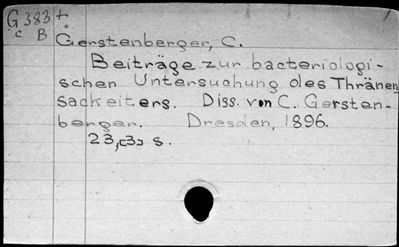 G 383 t
c B
Gerstenberger, C.
Beiträge zur bacteriologi-
schen Untersuchung des Thränen
sackeiters. Diss. von C. Gersten-
berger. Dresden, 1896.
23,[3] s.